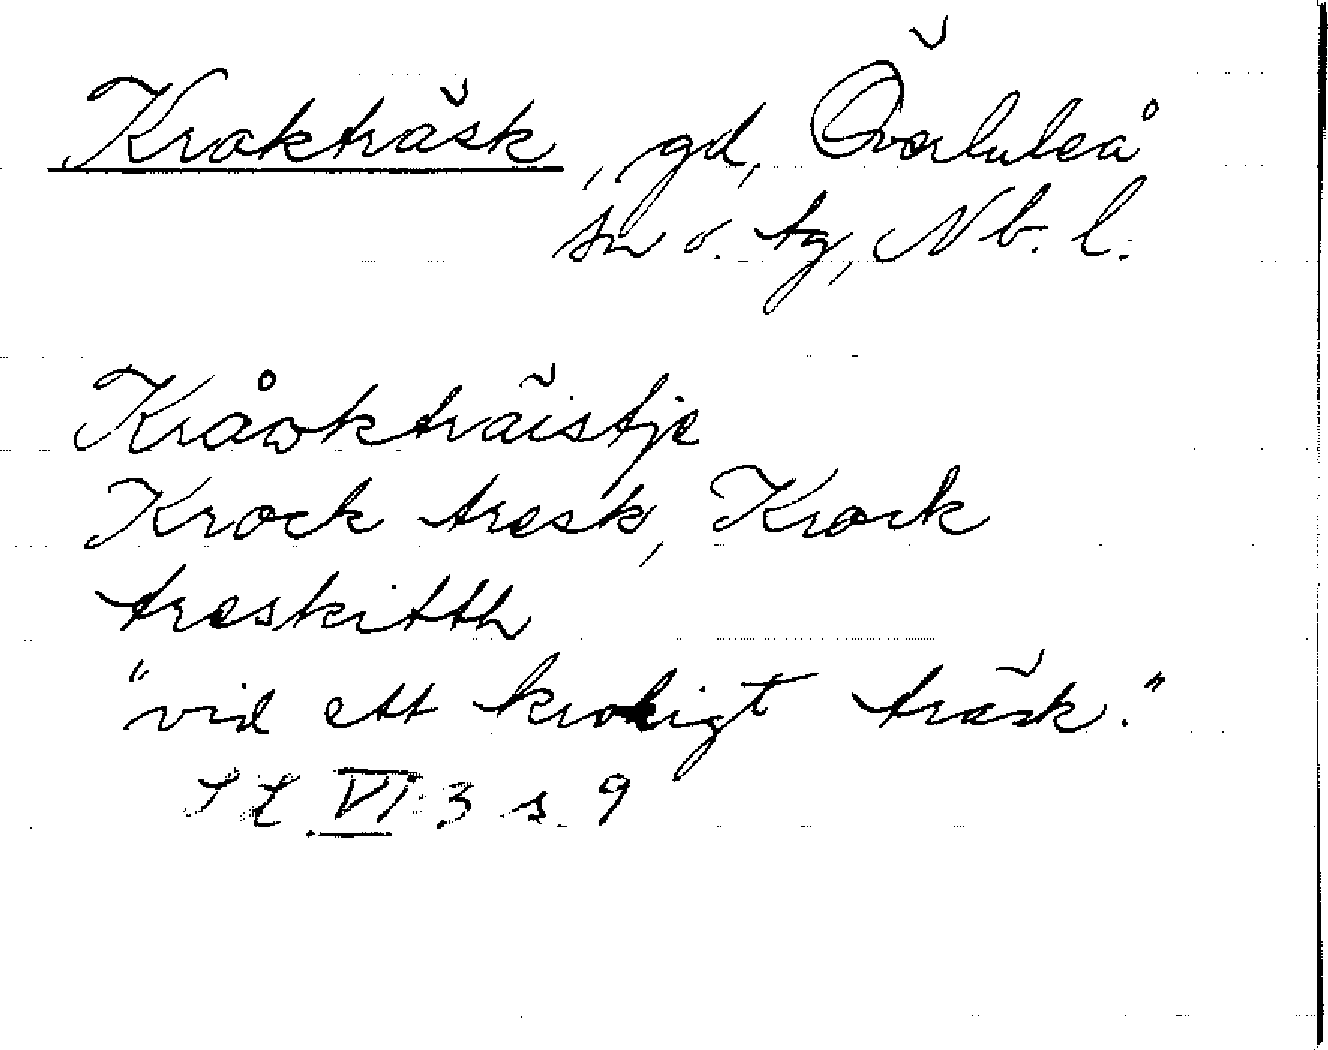 Krokträsk, gd, Överluleå
sn o. tg, Nb. l.
Kråwkträistje
Krock tresk, Krock
treskitth
"vid ett krokigt träsk."
SL VI:3 s. 9